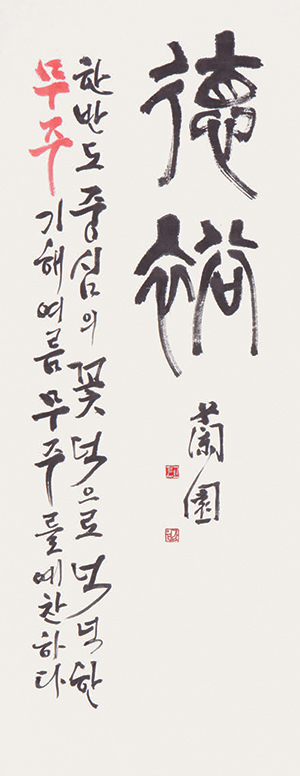 德裕
蘭園
한반도 중심의 꽃 덕으로 넉넉한
무주 기해여름 무주를 예찬하다